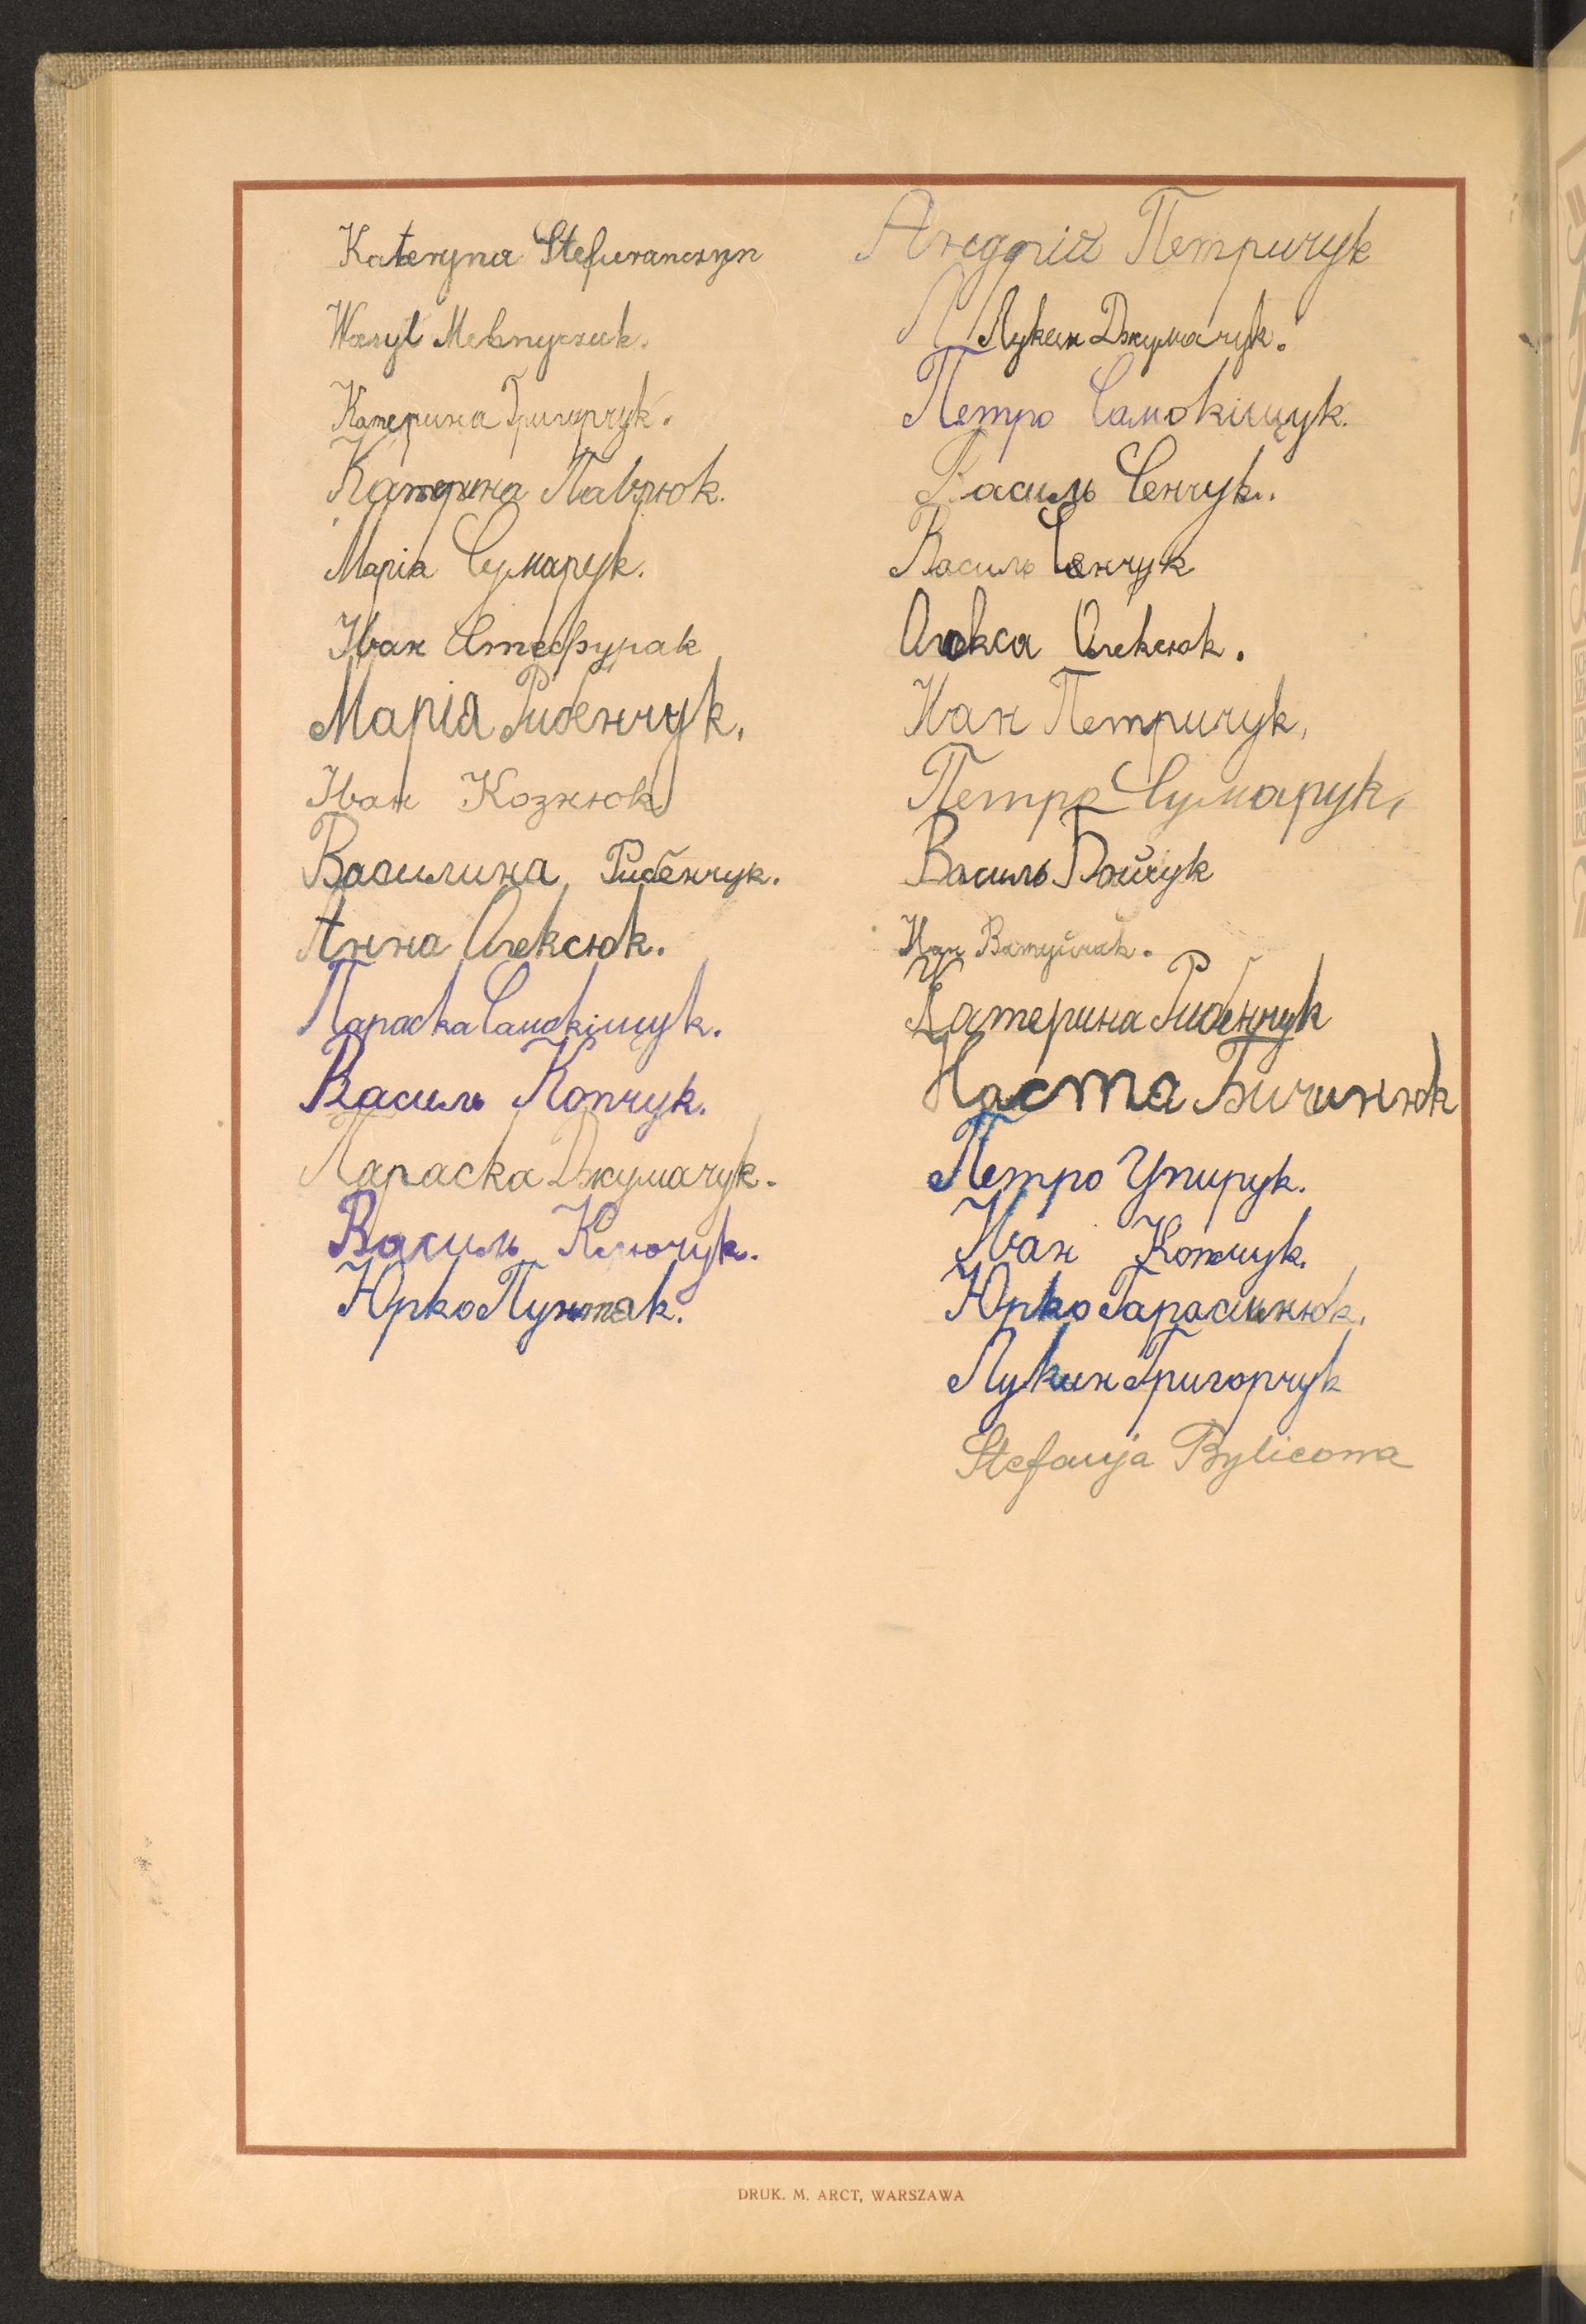 Kateryna Stefuranczyn
Wasyl Melnyczuk.
Катерина Григорчук.
Катерина Павлюк.
Марія Сумарук.
Іван Стефурак
Марія Рибенчук.
Іван Козжюк
Василина Рибенчук.
Анна Олексюк.
Параска Самокіщук.
Василь Копчук.
Параска Джумачук.
Василь Ключук.
Юрко Пужтак.
Петричук
Лукен Джумачук.
Петро Самокіщук.
Василь Сенчук.
Василь Сенчук
Олекса Олексюк.
Іван Петричук.
Петро Сумарук,
Василь Бойчук
Іван
Катерина Рибенчук
Наста Бичинюк
Петро Упирук.
Іван Копчук.
Юрко Гарасимюк.
Лукин Григорчук
Stefanja Bylicowa
DRUK. M. ARCT, WARSZAWA